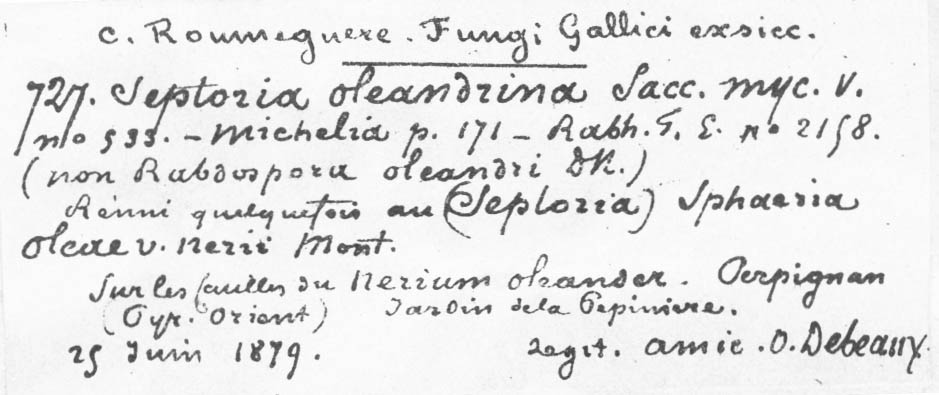 C. Roumeguere. Fungi Gallici exsicc.
727. Septoria oleandrina Sacc. myc. V.
no 533. - Michelia p. 171 - Rabh. F. E. no 2158.
(non Rabdospora oleandri DR.)
Réuni quelquefois au (Septoria) Sphaeria
Oleae v. Nerii Mont.
Sur les feuilles du Nerium oleander. Perpignan
(Pyr. Orient) Jardin de la Pepiniere.
25 Juin 1879. Legit. amic. O. Debeaux.